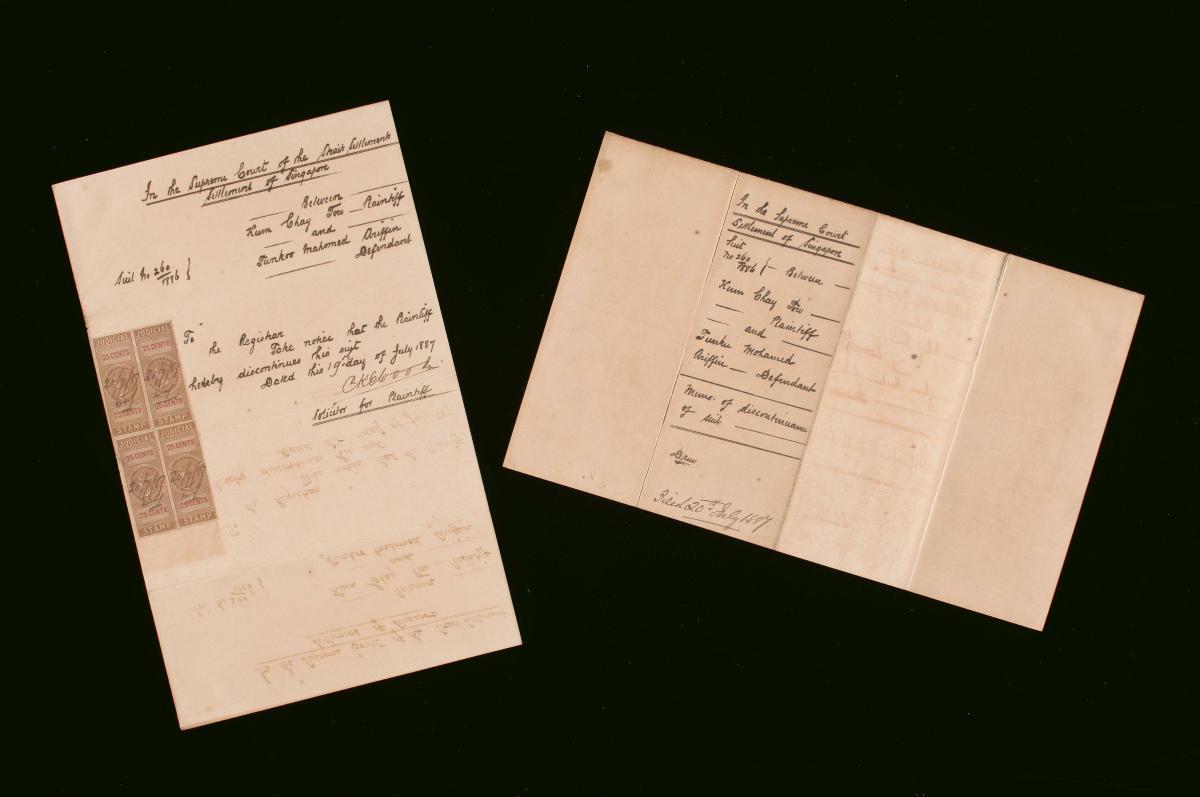 In the Supreme Court of the Strait Settlements
Settlement of Singapore
Between
Kum Chay Tow Plaintiff
and
Tunkoo Mahomed Ariffin
Defendant
Suit No 260/1886 }
To
the Registrar
Take notice that the Plaintiff
hereby discontinues his suit
Dated this 19th day of July 1887
Solicitor for Plaintiff
JUDICIAL JUDICIAL
25 CENTS 25 CENTS
20/7/87 20/7/87
25 CENTS 25 CENTS
STAMP STAMP
JUDICIAL JUDICIAL
25 CENTS 25 CENTS
20/7/87 20/7/87
25 CENTS 25 CENTS
STAMP STAMP
In the Supreme Court
Settlement of Singapore
Suit
No 260/1886 } Between
Kum Chay Tow
Plaintiff
and
Tunku Mohamed
Ariffin Defendant
Memo. of discontinuance
of suit
Drew
Filed 20th July 1887